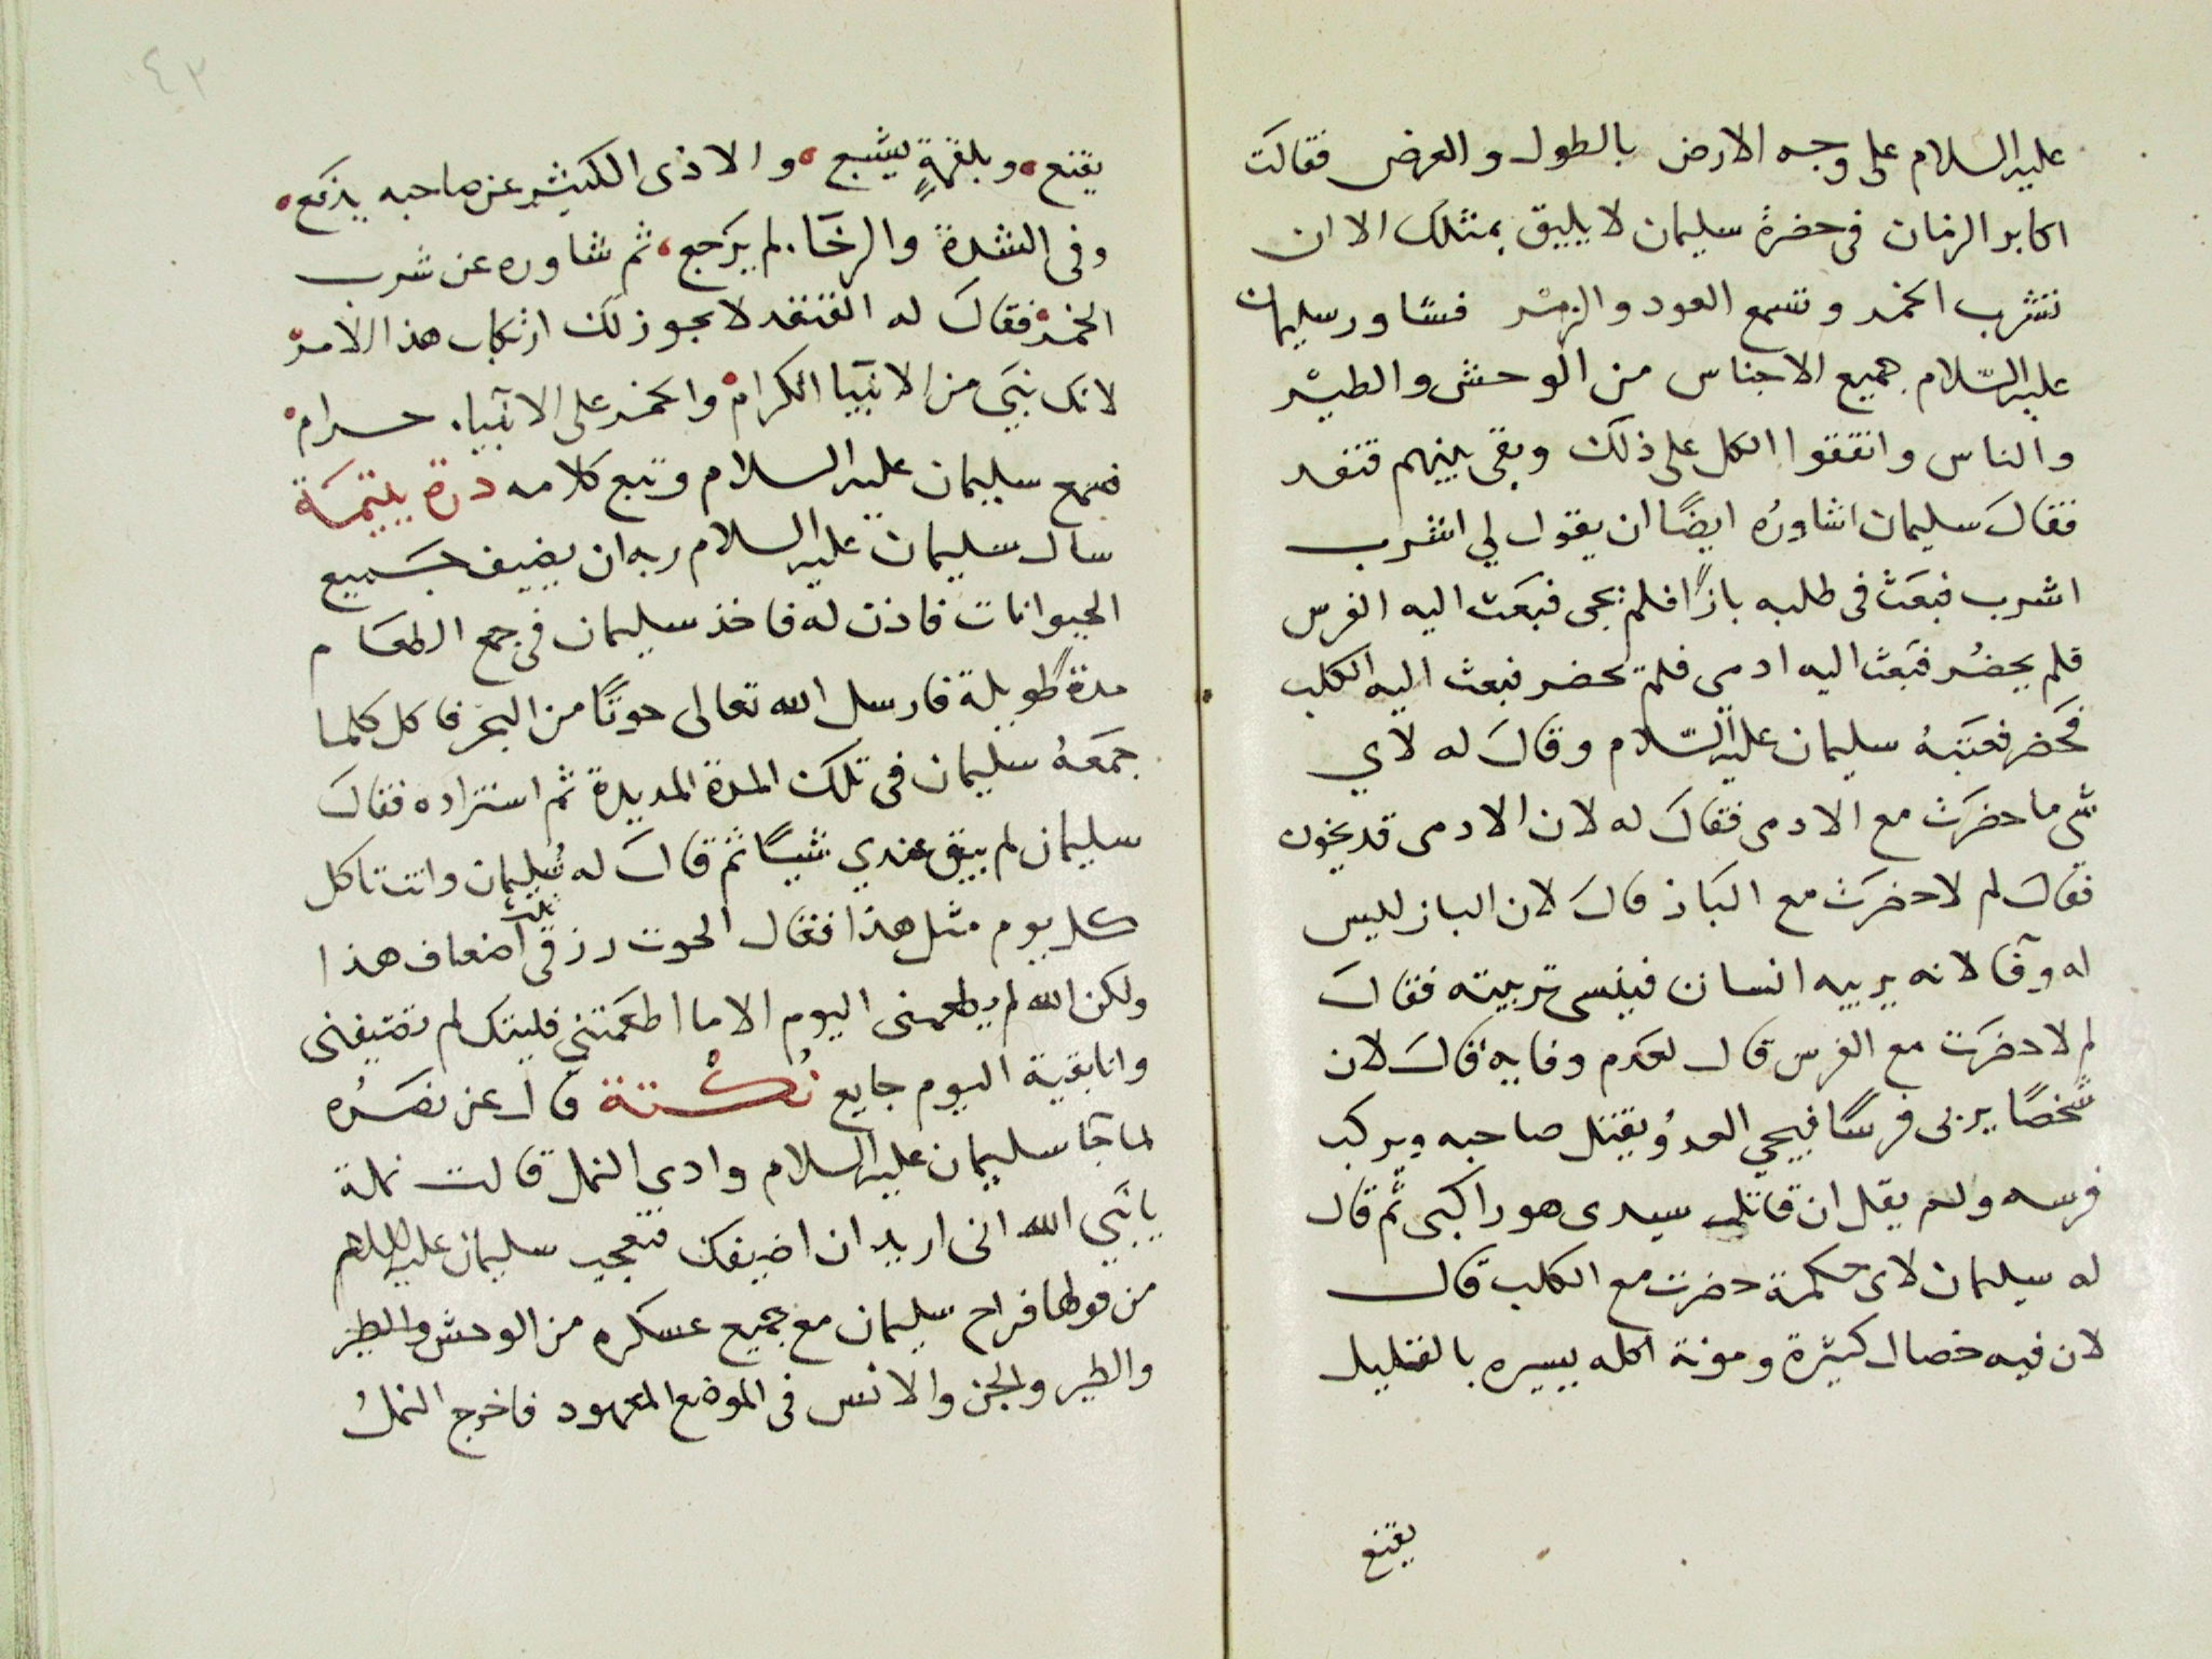 عليه السلام على وجه الارض بالطول والعرض فقالت
اكابر الزمان في حضرة سليمان لا يليق بمثلك الا ان
تشرب الخمر وتسمع العود والزمر فشاور سليمان
عليه السّلام جميع الاجناس من الوحش والطير
والناس واتفقوا الكل على ذلك وبقى بينهم قنفد
فقال سليمان اشاوره ايضًا ان يقول لي اشرب
اشرب فبعث في طلبه بازًا فلم يجى فبعث اليه الفرس
فلم يحضر فبعث اليه ادمي فلم يحضر فبعث اليه الكلب
فحضر فعتبه سليمان عليه السّلام وقال له لاي
شى ما حضرت مع الادمى فقال له لان الادمى قد يخون
فقال لم لا حضرت مع الباز قال لان الباز لليس
له وفا لانه يربيه انسان فينسى تربيته فقال
لم لا حضرت مع الفرس قال لعدم وفايه قال لان
شخصًا يربى فرسًا فيجي العدو يقتل صاحبه ويركب
فرسه ولم يقل ان قاتل سيدى هو راكبى ثم قال
له سليمان لاى حكمة حضرت مع الكلب قال
لان فيه خصال كثيرة ومونة اكله يسيره بالقليل
يقنع
٤٢
يقنع وبلقمةٍ يشبع والاذى الكثير عن صاحبه يدفع
وفى الشدة والرخاء لم يرجع ثم شاوره عن شرب
الخمر فقال له القنفد لا يجوز لك ارتكاب هذا الامر
لانك نبي من الانبيا الكرام والخمر على الانبياء حرام
فسمع سليمان عليه السلام وتبع كلامه درة يتيمة
سال سليمان عليه السلام ربه ان يضيف جميع
الحيوانات فاذن له فاخذ سليمان في جمع الطعام
مدة طويلة فارسل الله تعالى حوتًا من البحر فاكل كلما
جمعه سليمان في تلك المدة المديدة ثم استزاده فقال
سليمان لم يبق عندي شيًا ثم قال له سليمان وانت تاكل
كل يوم مثل هذا فقال الحوت رزقى ثلث اضعاف هذا
ولكن الله لم يطعمنى اليوم الا ما اطعمتني فليتك لم تضيفنى
وانا بقية اليوم جايع نكتة قال عز نصره
لما جا سليمان عليه السلام وادى النمل قالت نملة
يا نبي الله انى اريد ان اضيفك فتعجب سليمان عليه السلام
من قولها فراح سليمان مع جميع عسكره من الوحش والطير
والطير والجن والانس فى الموضع المعهود فاخرج النمل